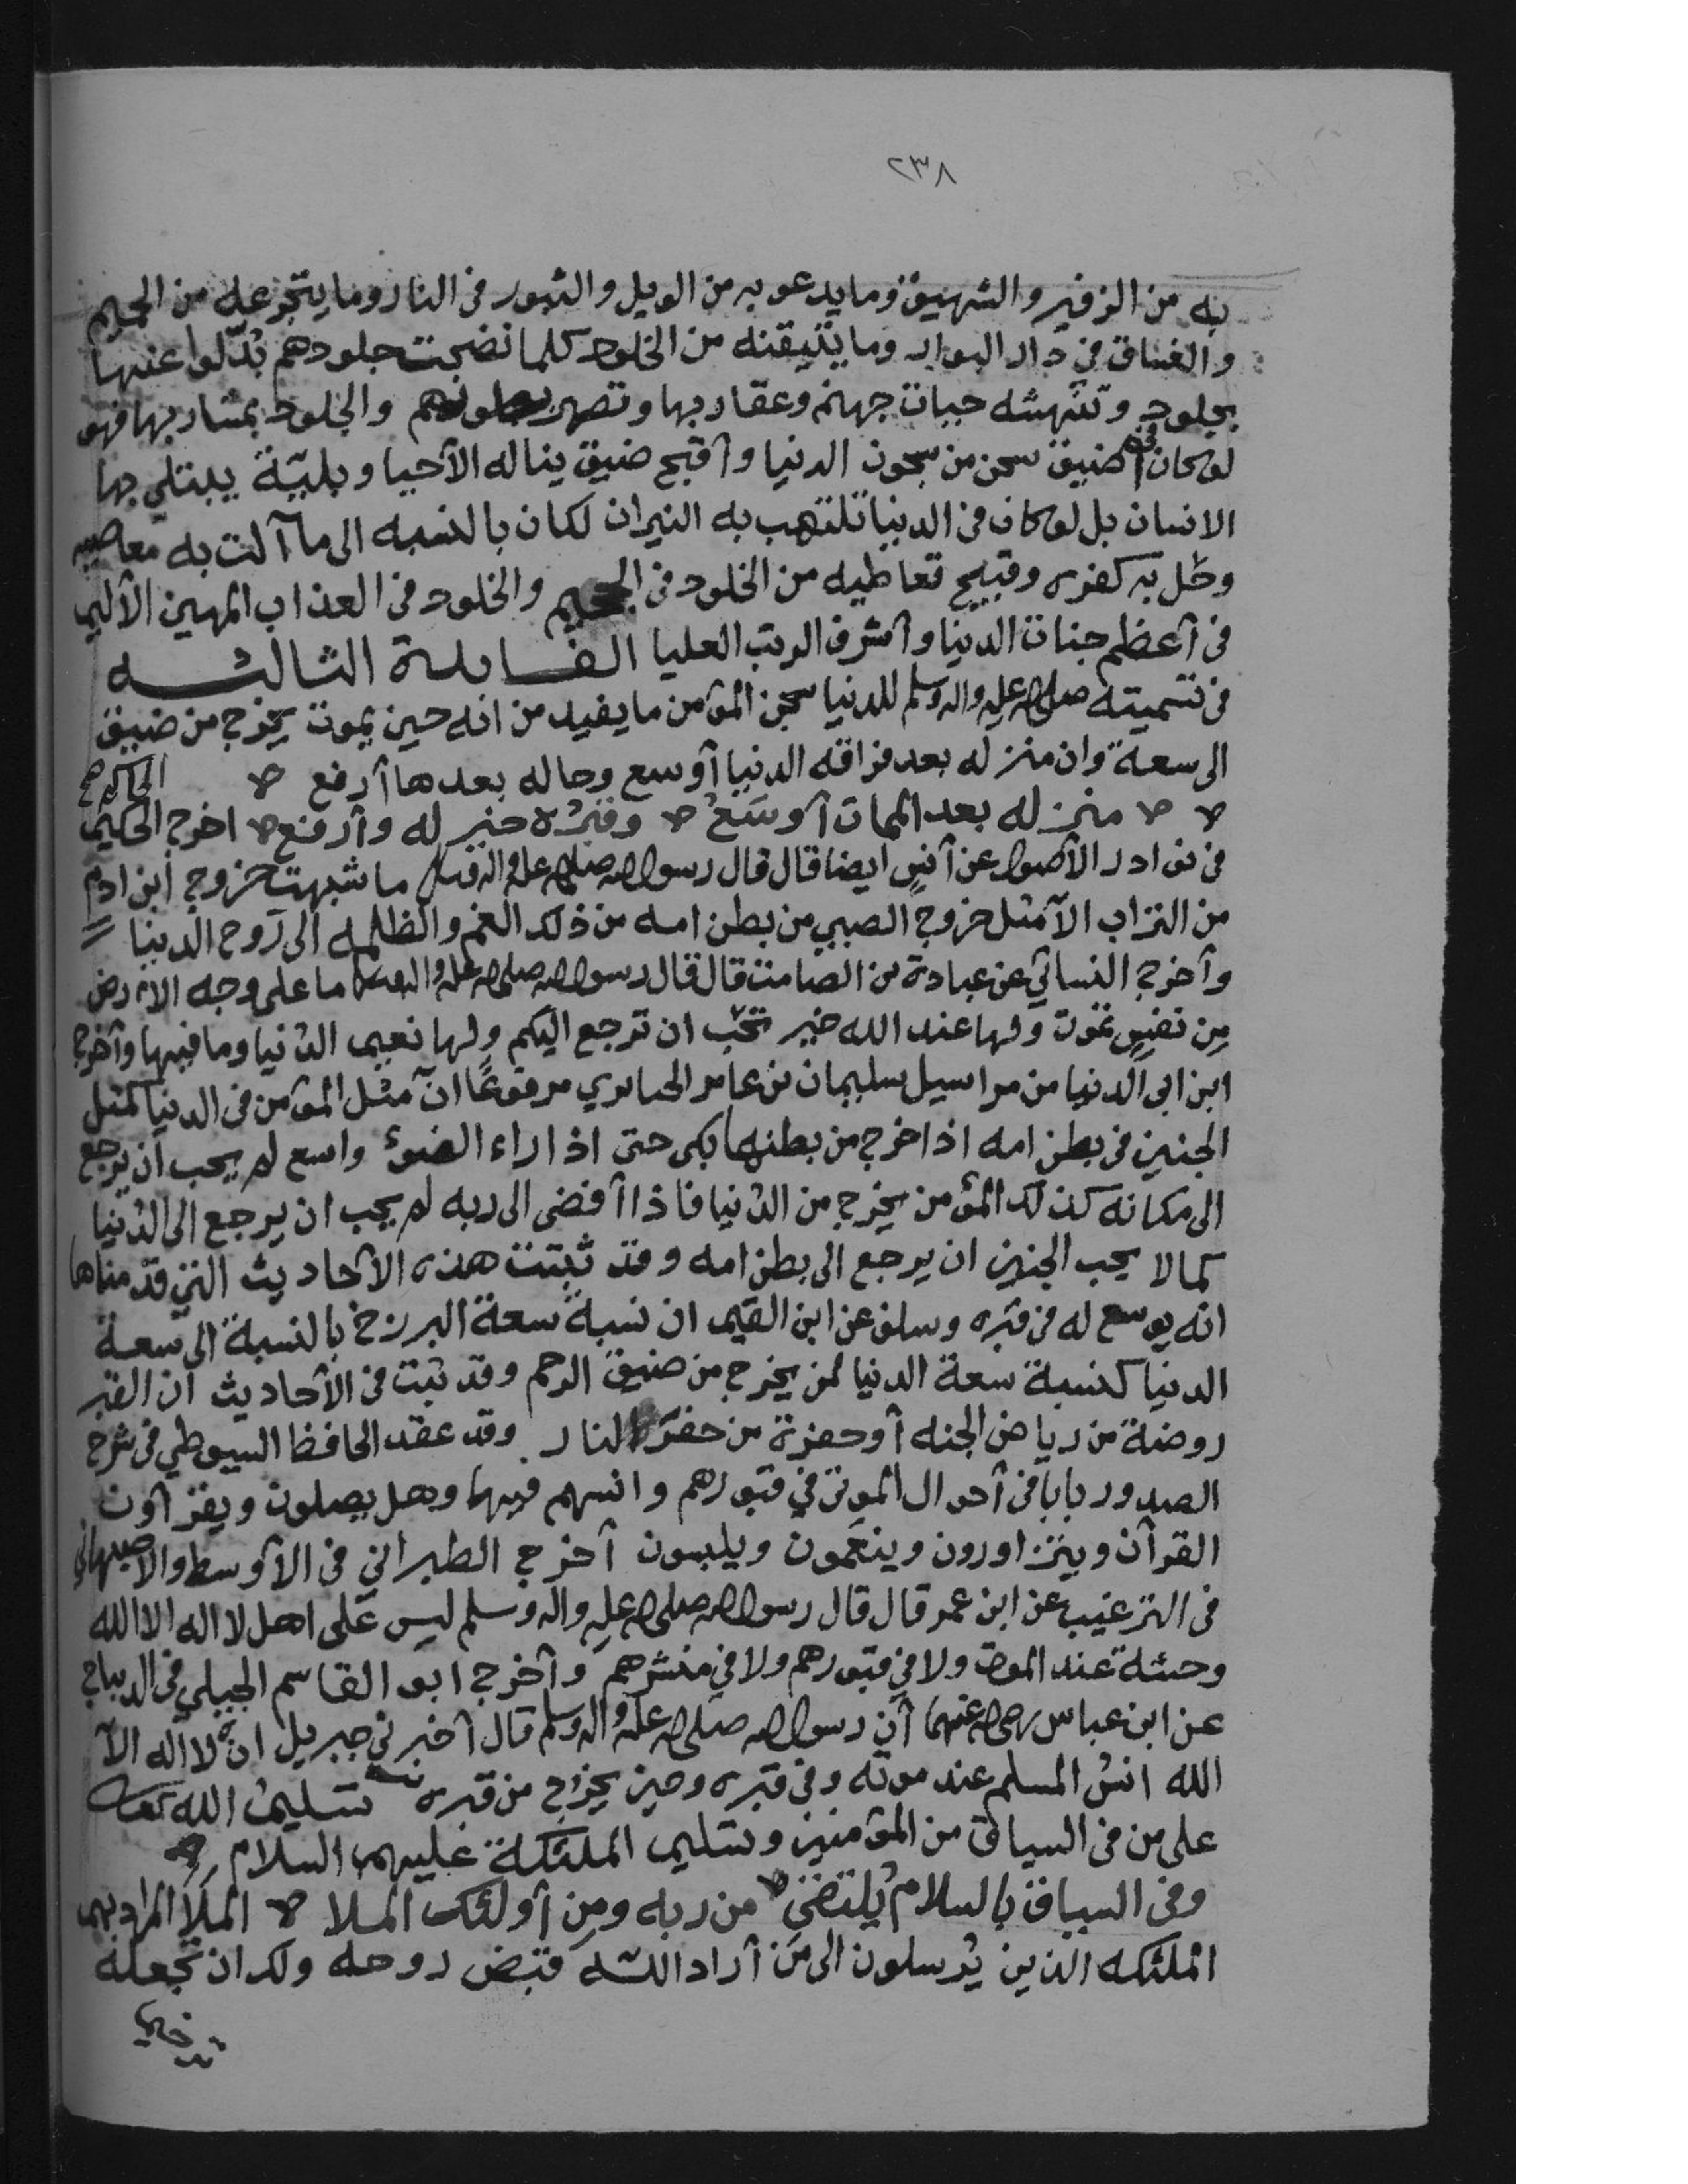 ٢٣٨
به من الزفير والشهيق وما يدعو به من الويل والثبور في النار وما يتجرعه من الحميم
والغساق في دار البوار وما يتيقنه من الخلود كلما نضجت جلودهم بدّلوا عنها
بجلود وتنهشه حيات جهنم وعقاربها وتصهر بطونهم والجلود بمشاربها فهو
لو كان في أضيق سجن من سجون الدنيا وأقبح ضيق يناله الأحيا وبليّة يبتلى بها
الانسان بل لو كان في الدنيا تلتهب به النيران لكان بالنسبه الى ما آلت به معاصيه
وحل به كفره وقبيح تعاطيه من الخلود في الجحيم والخلود في العذاب المهين الأليم
في أعظم جنات الدنيا وأشرف الرتب العليا الفايدة الثالثه
في تسميته صلى الله عليه واله وسلم للدنيا سجن المؤمن ما يفيد من انه حين يموت يخرج من ضيق
الى سعة وان منزله بعد فراقه الدنيا أوسع وحاله بعدها أرفع
منزله بعد الممات أوسَعُ وقبره خير له وأرفع اخرج الحكيم
في نوادر الأصول عن أنسٍ ايضا قال قال رسول الله صلى الله عليه واله وسلم ما شبهت خروج ابن ادم
من التراب الآ مثل خروج الصبي من بطن امه من ذلك الغم والظلمه الى رَوح الدنيا
وأخرج النسائي عن عبادة بن الصامت قال قال رسول الله صلى الله عليه واله وسلم ما على وجه الارض
مِن نفسٍ تموت ولها عند الله خير تحب ان ترجع اليكم ولها نعيم الدنيا وما فيها وأخرج
ابن ابي الدنيا من مراسيل سليمان بن عامر الحبايري مرفوعًا انّ مثل المؤمن في الدنيا كمثل
الجنين في بطن امه اذا خرج من بطنها بكى حتى اذا راء الضوء واسع لم يحب ان يرجع
الى مكانه كذلك المؤمن يخرج من الدنيا فاذا أفضى الى ربه لم يحب ان يرجع الى الدنيا
كما لا يحب الجنين ان يرجع الى بطن امه وقد ثبتت هذه الأحاديث التي قدمناها
انه يوسع له في قبره وسلف عن ابن القيم ان نسبة سعة البرزخ بالنسبة الى سعة
الدنيا كنسبة سعة الدنيا لمن يخرج من ضيق الرحم وقد ثبت في الأحاديث أن القبر
روضة من رياض الجنه أو حفرة من حفر النار وقد عقد الحافظ السيوطي في شرح
الصدور بابا في أحوال الموتى في قبورهم وانسهم فيها وهل يصلون ويقرأون
القرآن ويتزاورون وينعمون ويلبسون أخرج الطبراني في الأوسط والاصبهاني
في الترغيب عن ابن عمر قال قال رسول الله صلى الله عليه واله وسلم ليس على اهل لا اله الا الله
وحشة عند الموت ولا في قبورهم ولا في منشرهم وأخرج ابو القاسم الجبلي في الديباج
عن ابن عباس رضي الله عنهما أن رسول الله صلى الله عليه واله وسلم قال أخبرني جبريل انّ لا اله الآ
الله انسٌ للمسلم عند موته وفي قبره وحين يخرج من قبره تسليم الله تعالى
على من في السياق من المؤمنين وتسليم الملئكة عليهم السلام
وفي السياق بالسلام يُلتقى من ربه ومِن أولئك الملا الملأ المراد بهم
الملئكه الذين يُرسلون الى مَن أراد الله قبض روحه ولك ان تجعله